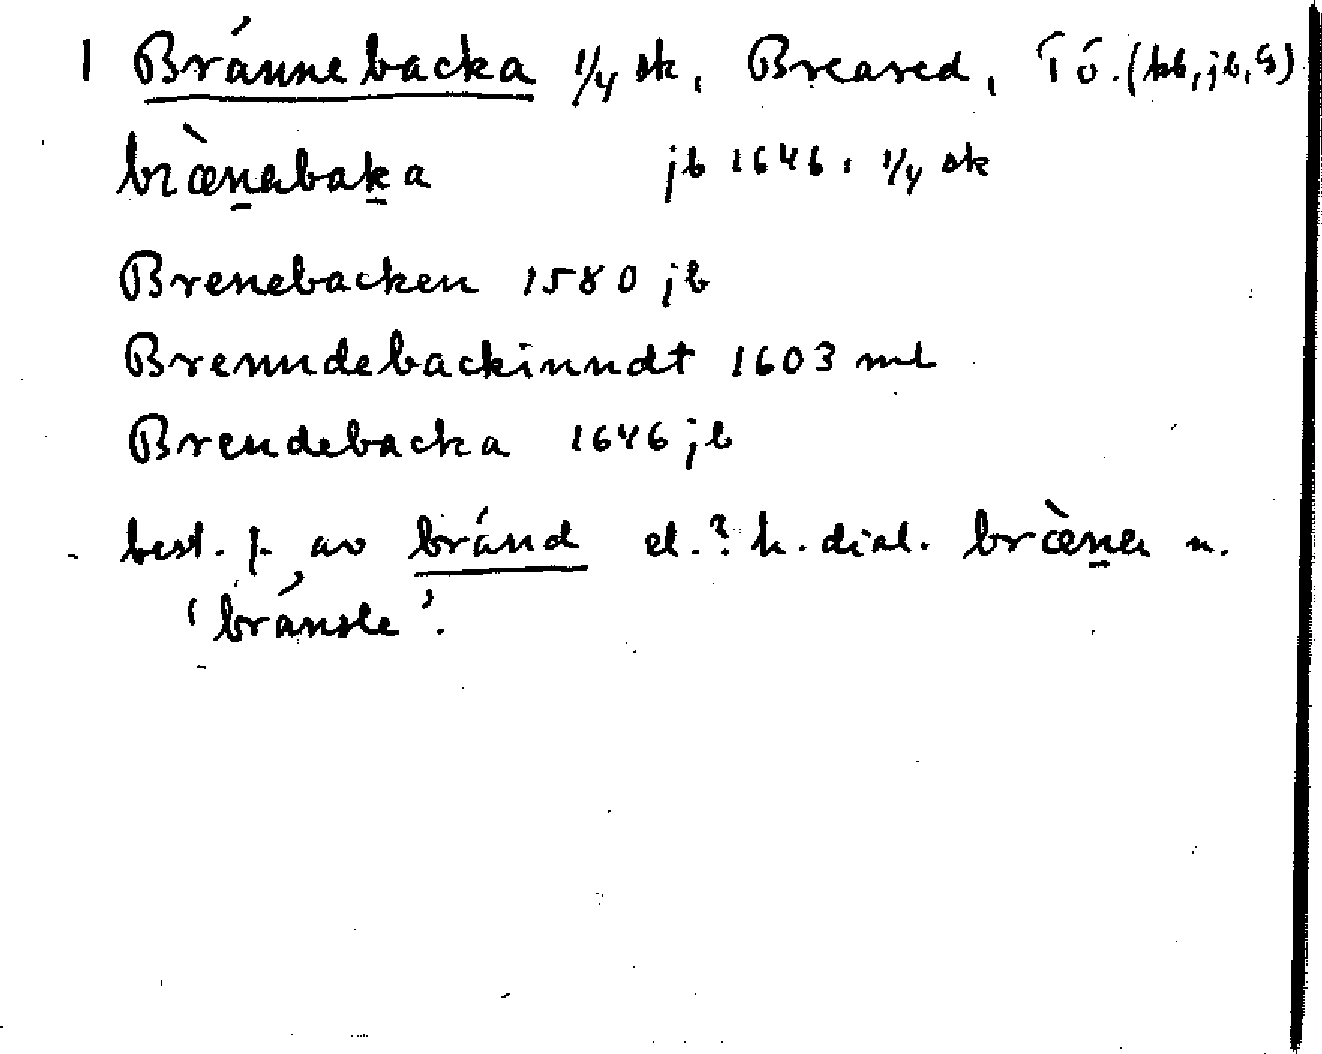 1 Brännebacka 1/4 sk, Breared, Tö. (kb, jb, G)
bræ̀nabaka jb 1646, 1/4 sk
Brenebacken 1580 jb
Brenndebackinndt 1603 ml
Brendebacka 1646 jb
best. f. av bränd el. ? h. dial. bræ̀na n.
'bränsle'.